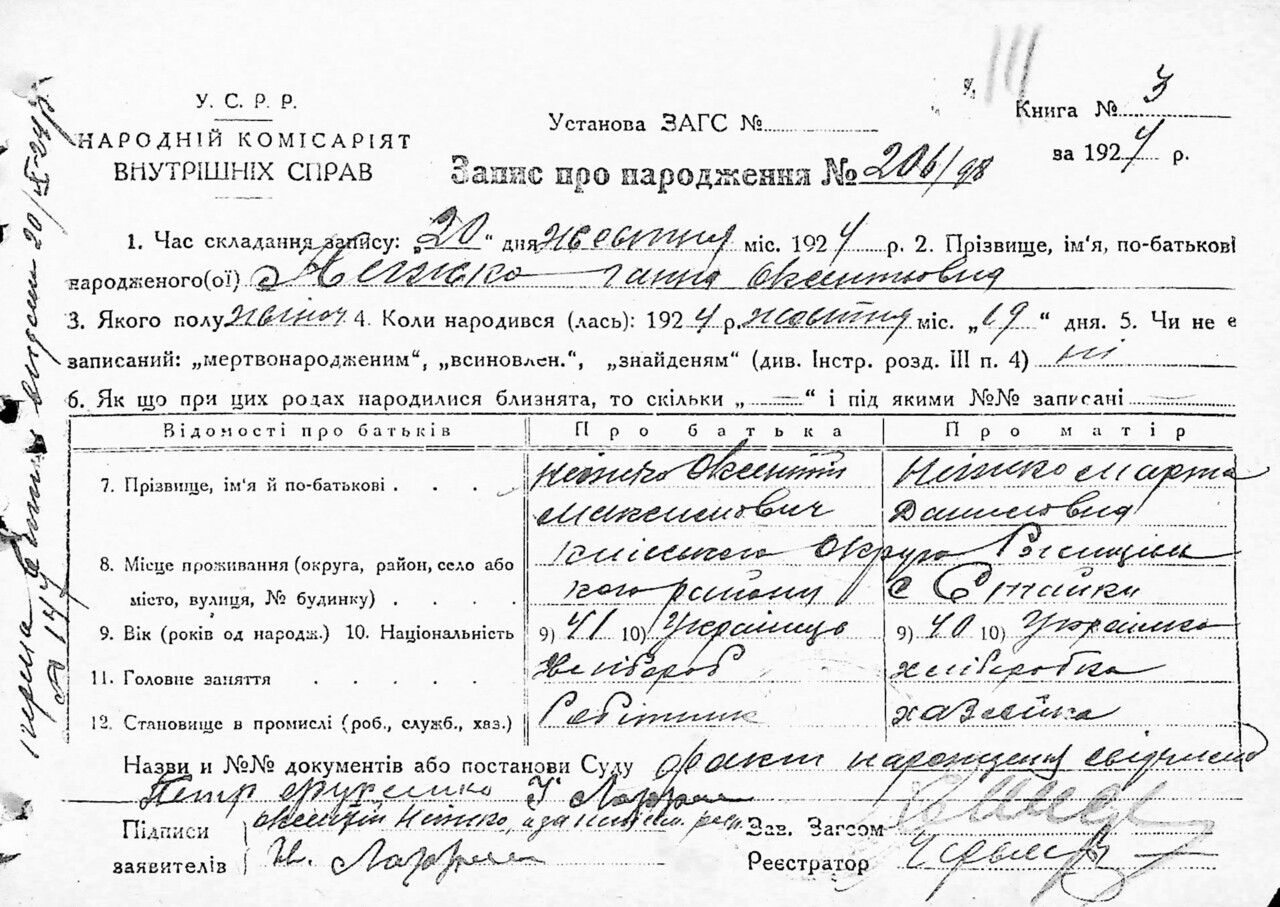 У. С. Р. Р.
НАРОДНІЙ КОМІСАРІЯТ
ВНУТРІШНІХ СПРАВ
Установа ЗАГС №
Книга № 3
за 1924 р.
Запис про народження № 206/98
1. Час складання запису: „20“ дня жовтня міс. 1924 р. 2. Прізвище, ім'я, по-батькові
народженого(ої) Ніжко Ганна Оксентіовна
3. Якого полу жіноч 4. Коли народився (лась): 1924 р. жовтня міс. „19“ дня. 5. Чи не є
записаний: „мертвонародженим“, „всиновлен.“, „знайденям“ (див. Інстр. розд. III п. 4) ні
6. Як що при цих родах народилися близнята, то скільки „—“ і під якими №№ записані —
Відомості про батьків Про батька Про матір
7. Прізвище, ім'я й по-батькові Ніжко Оксентій Ніжко Марта
Максимович Даниловна
8. Місце проживання (округа, район, село або Київського Округа Ржищівсь
місто, вулиця, № будинку) кого району с Стайки
9. Вік (років од народж.) 10. Національність 9) 41 10) Українець 9) 40 10) Українка
11. Головне заняття Хлібороб хліборобка
12. Становище в промислі (роб., служб., хаз.) Робітник хазяйка
Назви и №№ документів або постанови Суду факт народження свідчить
Петр
Підписи Оксентій Ніжко
заявителів
Зав. Загсом
Реєстратор